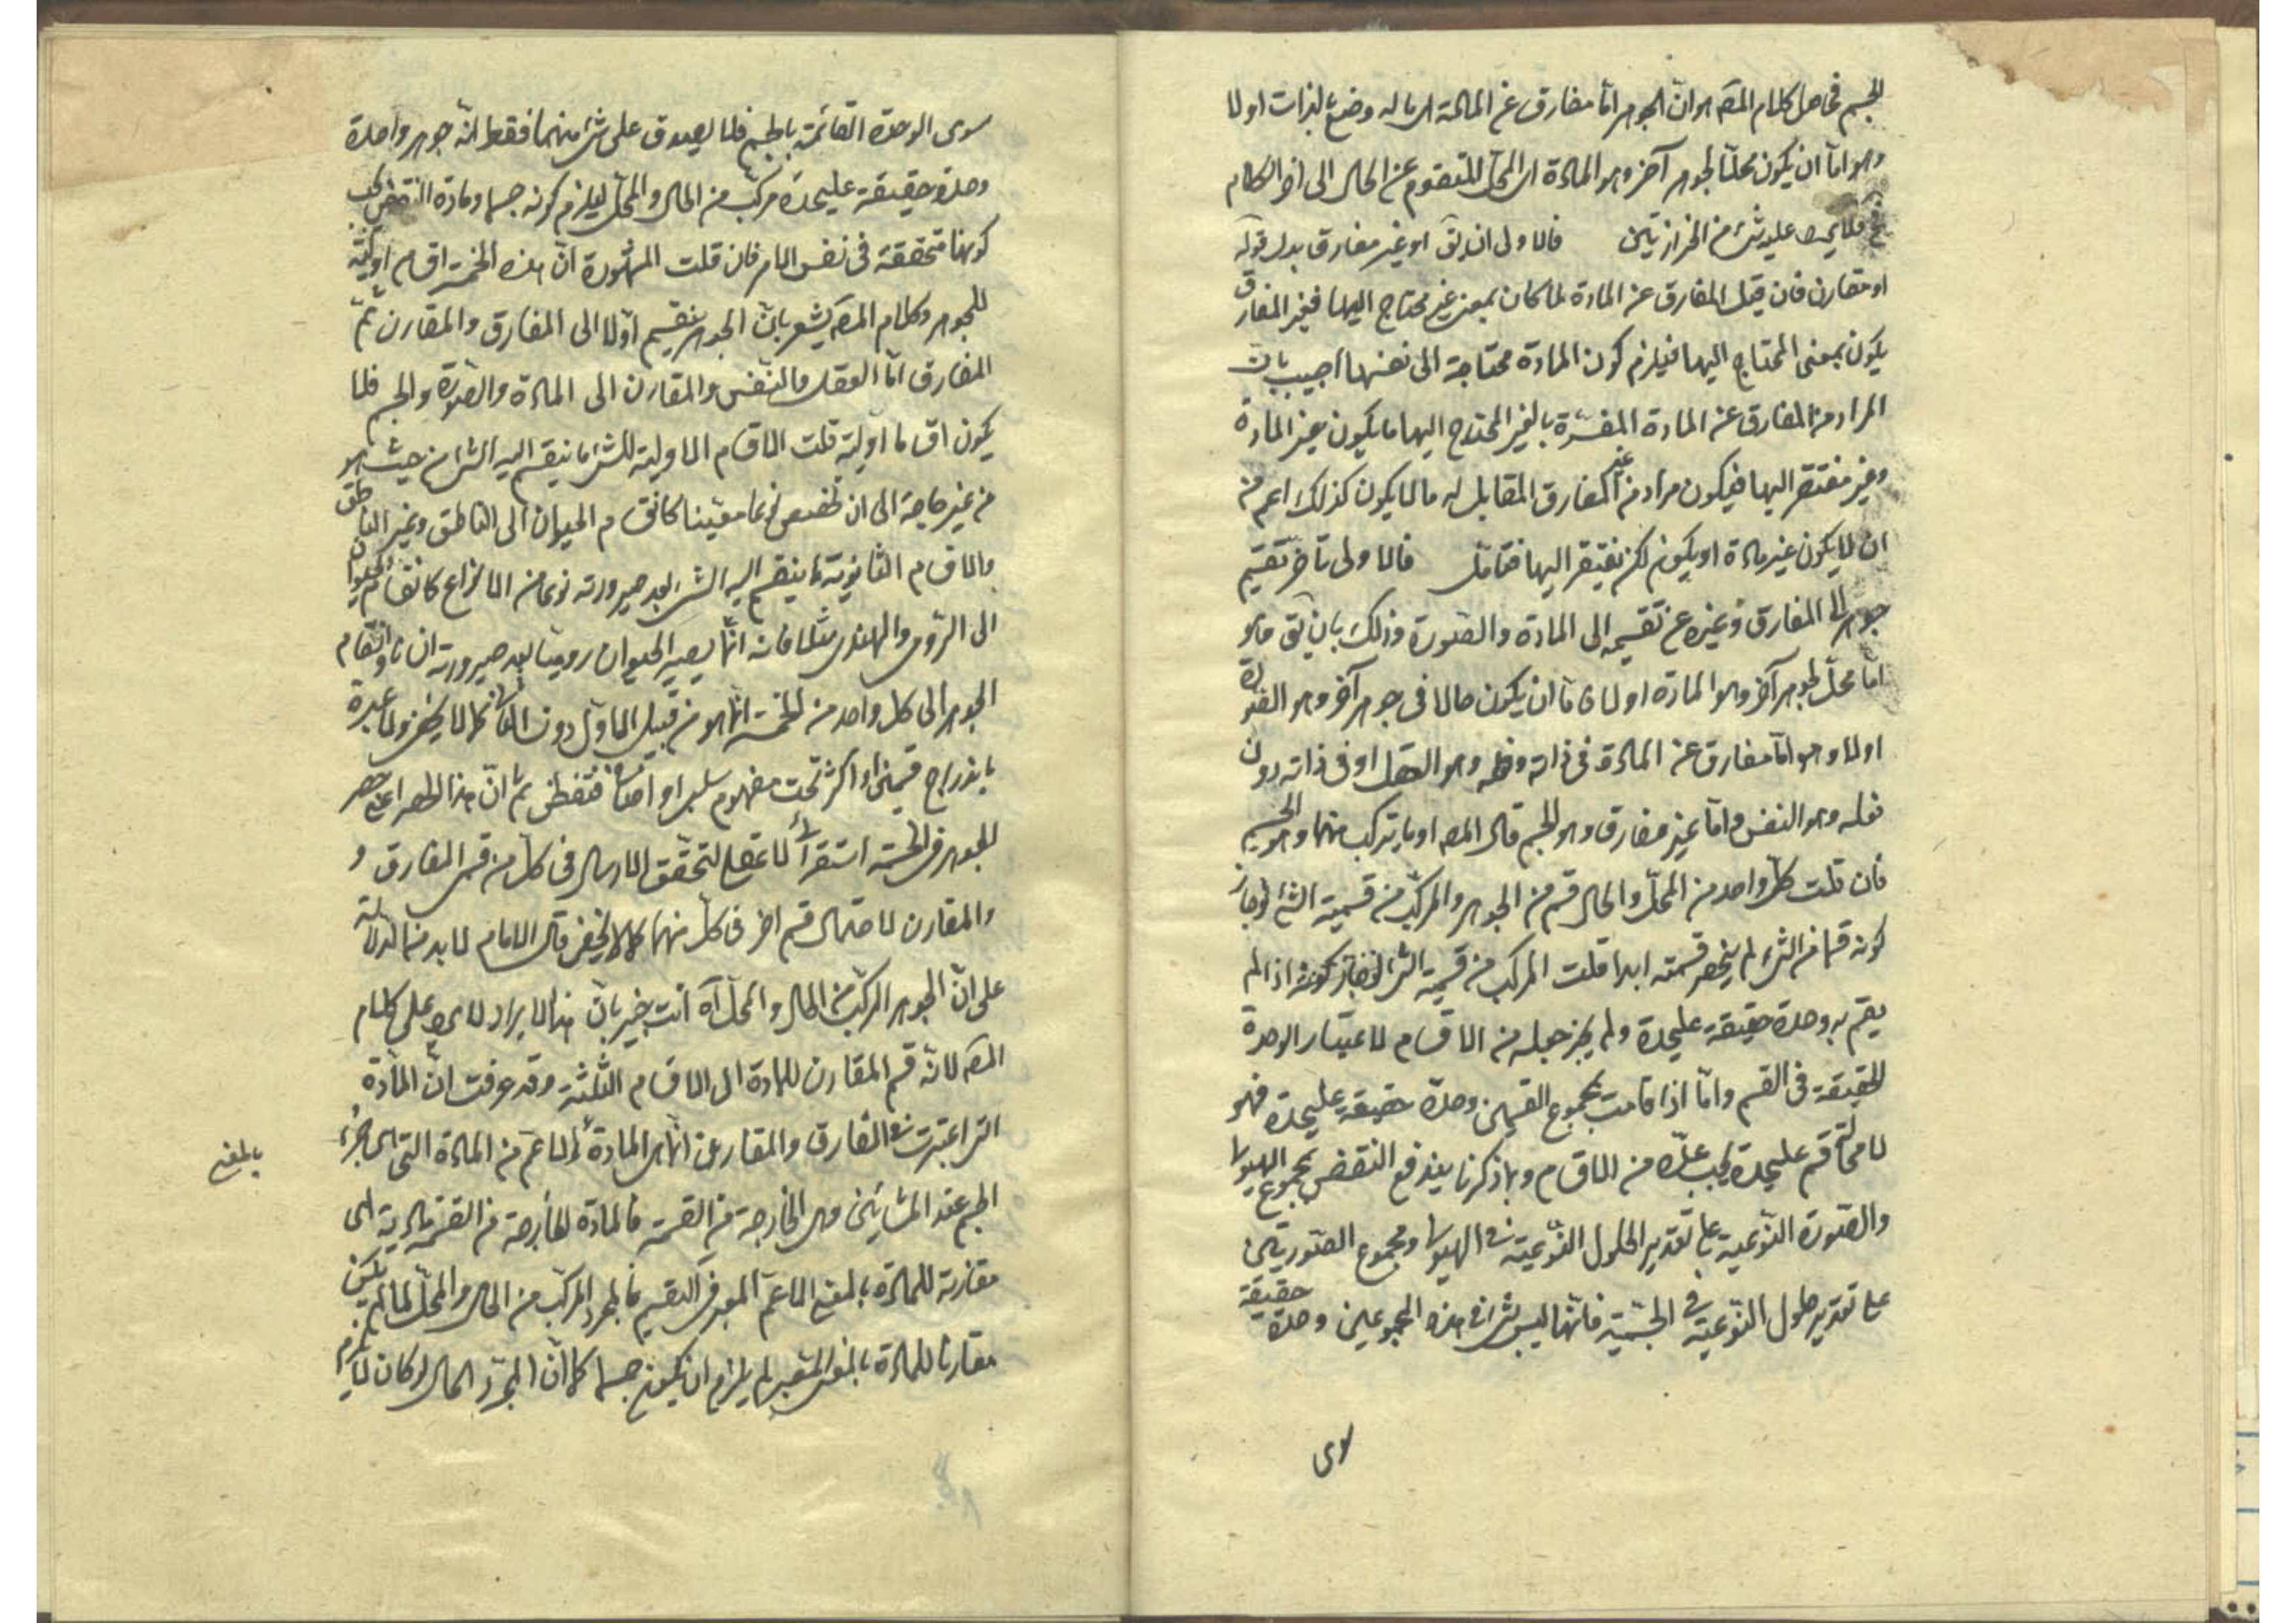 الجسم فحاصل كلام المصـ هو ان الجوهر اما مفارق عن المادة اى ما له وضع بالذات اولا
وهو اما ان يكون محلا لجوهر آخر وهو المادة اى المحل المتقوم عن الحال الى آخر الكلام
فح فلا يرد عليه شئ من الحزازتين فالاولى ان يق او غير مفارق بدل قوله
او مقارن فان قيل المفارق عن المادة لما كان بمعنى غير محتاج اليها فغير المفارق
يكون بمعنى المحتاج اليها فيلزم كون المادة محتاجة الى نفسها اجيب بان
المراد من المفارق عن المادة المفسرة بالغير المحتاج اليها ما يكون غير المادة
وغير مفتقر اليها فيكون مراد من غير المفارق المقابل له ما لا يكون كذلك اعم من
ان لا يكون غير مادة او يكون لكن يفتقر اليها فتأمل فالاولى تأخر تقسيم
جوهر الى المفارق وغيره عن تقسيمه الى المادة والصورة وذلك بان يق هو
اما محل لجوهر آخر وهو المادة اولا فاما ان يكون حالا فى جوهر آخر وهو الصورة
اولا وهو اما مفارق عن المادة فى ذاته وفعله وهو العقل او فى ذاته دون
فعله وهو النفس واما غير مفارق وهو الجسم قال المصـ او ما يتركب منهما وهو الجسم
فان قلت كل واحد من المحل والحال قسم من الجوهر والمركب من قسمى الشئ لو جاز
كونه قسما من الشئ لم ينحصر قسمته ابدا قلت المركب من قسمى الشئ لو جاز كونه اذا لم
يقم به وحدة حقيقة عليحدة ولم يجز جعله من الاقسام لاعتبار الوحدة
الحقيقة فى القسم واما اذا قامت بمجموع القسمين وحدة حقيقة عليحدة فهو
لا محالة قسم عليحدة يجب عده من الاقسام وبما ذكرنا يندفع النقض بمجموع الهيولى
والصورة النوعية على تقدير الحلول النوعية فى الهيولى ومجموع الصورتين
على تقدير حلول النوعية فى الجسمية فانها ليس شئ فى هذه المجموعين وحدة حقيقة
سوى الوحدة القائمة بالجسم فلا يصدق على شئ منهما فقط انه جوهر واحدة
وحدة حقيقة عليحدة مركب من الحال والمحل ليلزم كونه جسما ومادة النقض يجب
كونها متحققة فى نفس الامر فان قلت المشهورة ان هذه الخمسة اقسام اولية
للجوهر وكلام المصـ يشعر بان الجوهر ينقسم اولا الى المفارق والمقارن ثم
المفارق اما العقل والنفس والمقارن الى المادة والصورة والجسم فلا
يكون اقساما اولية قلت الاقسام الاولية للشئ ما ينقسم اليه الشئ من حيث هو
من غير حاجة الى ان تخصص نوعا معينا كانقسام الحيوان الى الناطق وغير الناطق
والاقسام الثانوية ما ينقسم اليه الشئ بعد صيرورته نوعا من الانواع كانقسام الحيوان
الى الرومى والهندى مثلا فانه انما يصير الحيوان روميا بعد صيرورته انسانا وانقسام
الجوهر الى كل واحد من الخمسة انما هو من قبيل الاول دون الثانى كما لا يخفى ولا عبرة
باندراج قسمين او اكثر تحت مفهوم سلبى او اضافى فتفطن ثم ان هذا الحصر اعنى حصر
الجوهر فى الخمسة استقرائى لا عقلى لتحقق الارسال فى كل من قسمى المفارق و
والمقارن لاحتمال قسم آخر فى كل منهما كما لا يخفى قال الامام لا بد من الدلالة
على ان الجوهر المركب من الحال والمحل آه انت خبير بان هذا الايراد لا يرد على كلام
المصـ لانه قسم المقارن للمادة الى الاقسام الثلثة وقد عرفت ان المادة
التى اعتبرت فى المفارق والمقارن انها هى المادة الاعم من المادة التى هى جزء
بالمعنى
الجسم عند المشائين وهى الخارجة من القسمة فالمادة الخارجة من القسمة مادية اى
مقارنة للمادة بالمعنى الاعم المعبر فى التقسيم فالمجرد المركب من الحال والمحل لما لم يكن
مقارنا للمادة بالمعنى المعتبر لم يلزم ان يكون جسما كما ان المجرد الحال لو كان لا يلزم
لاى